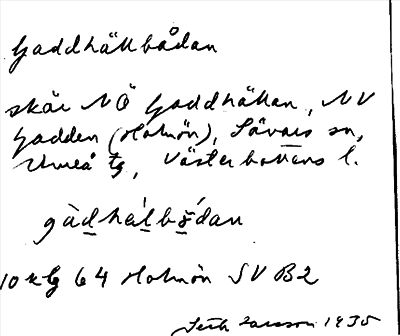 Gaddhällbådan
skär NÖ Gaddhällan, NV
Gadden (Holmön), Sävars sn,
Umeå tg, Västerbottens l.
gàdhälbǻdan
10 kbg 64 Holmön SV B2
Larsson 1935